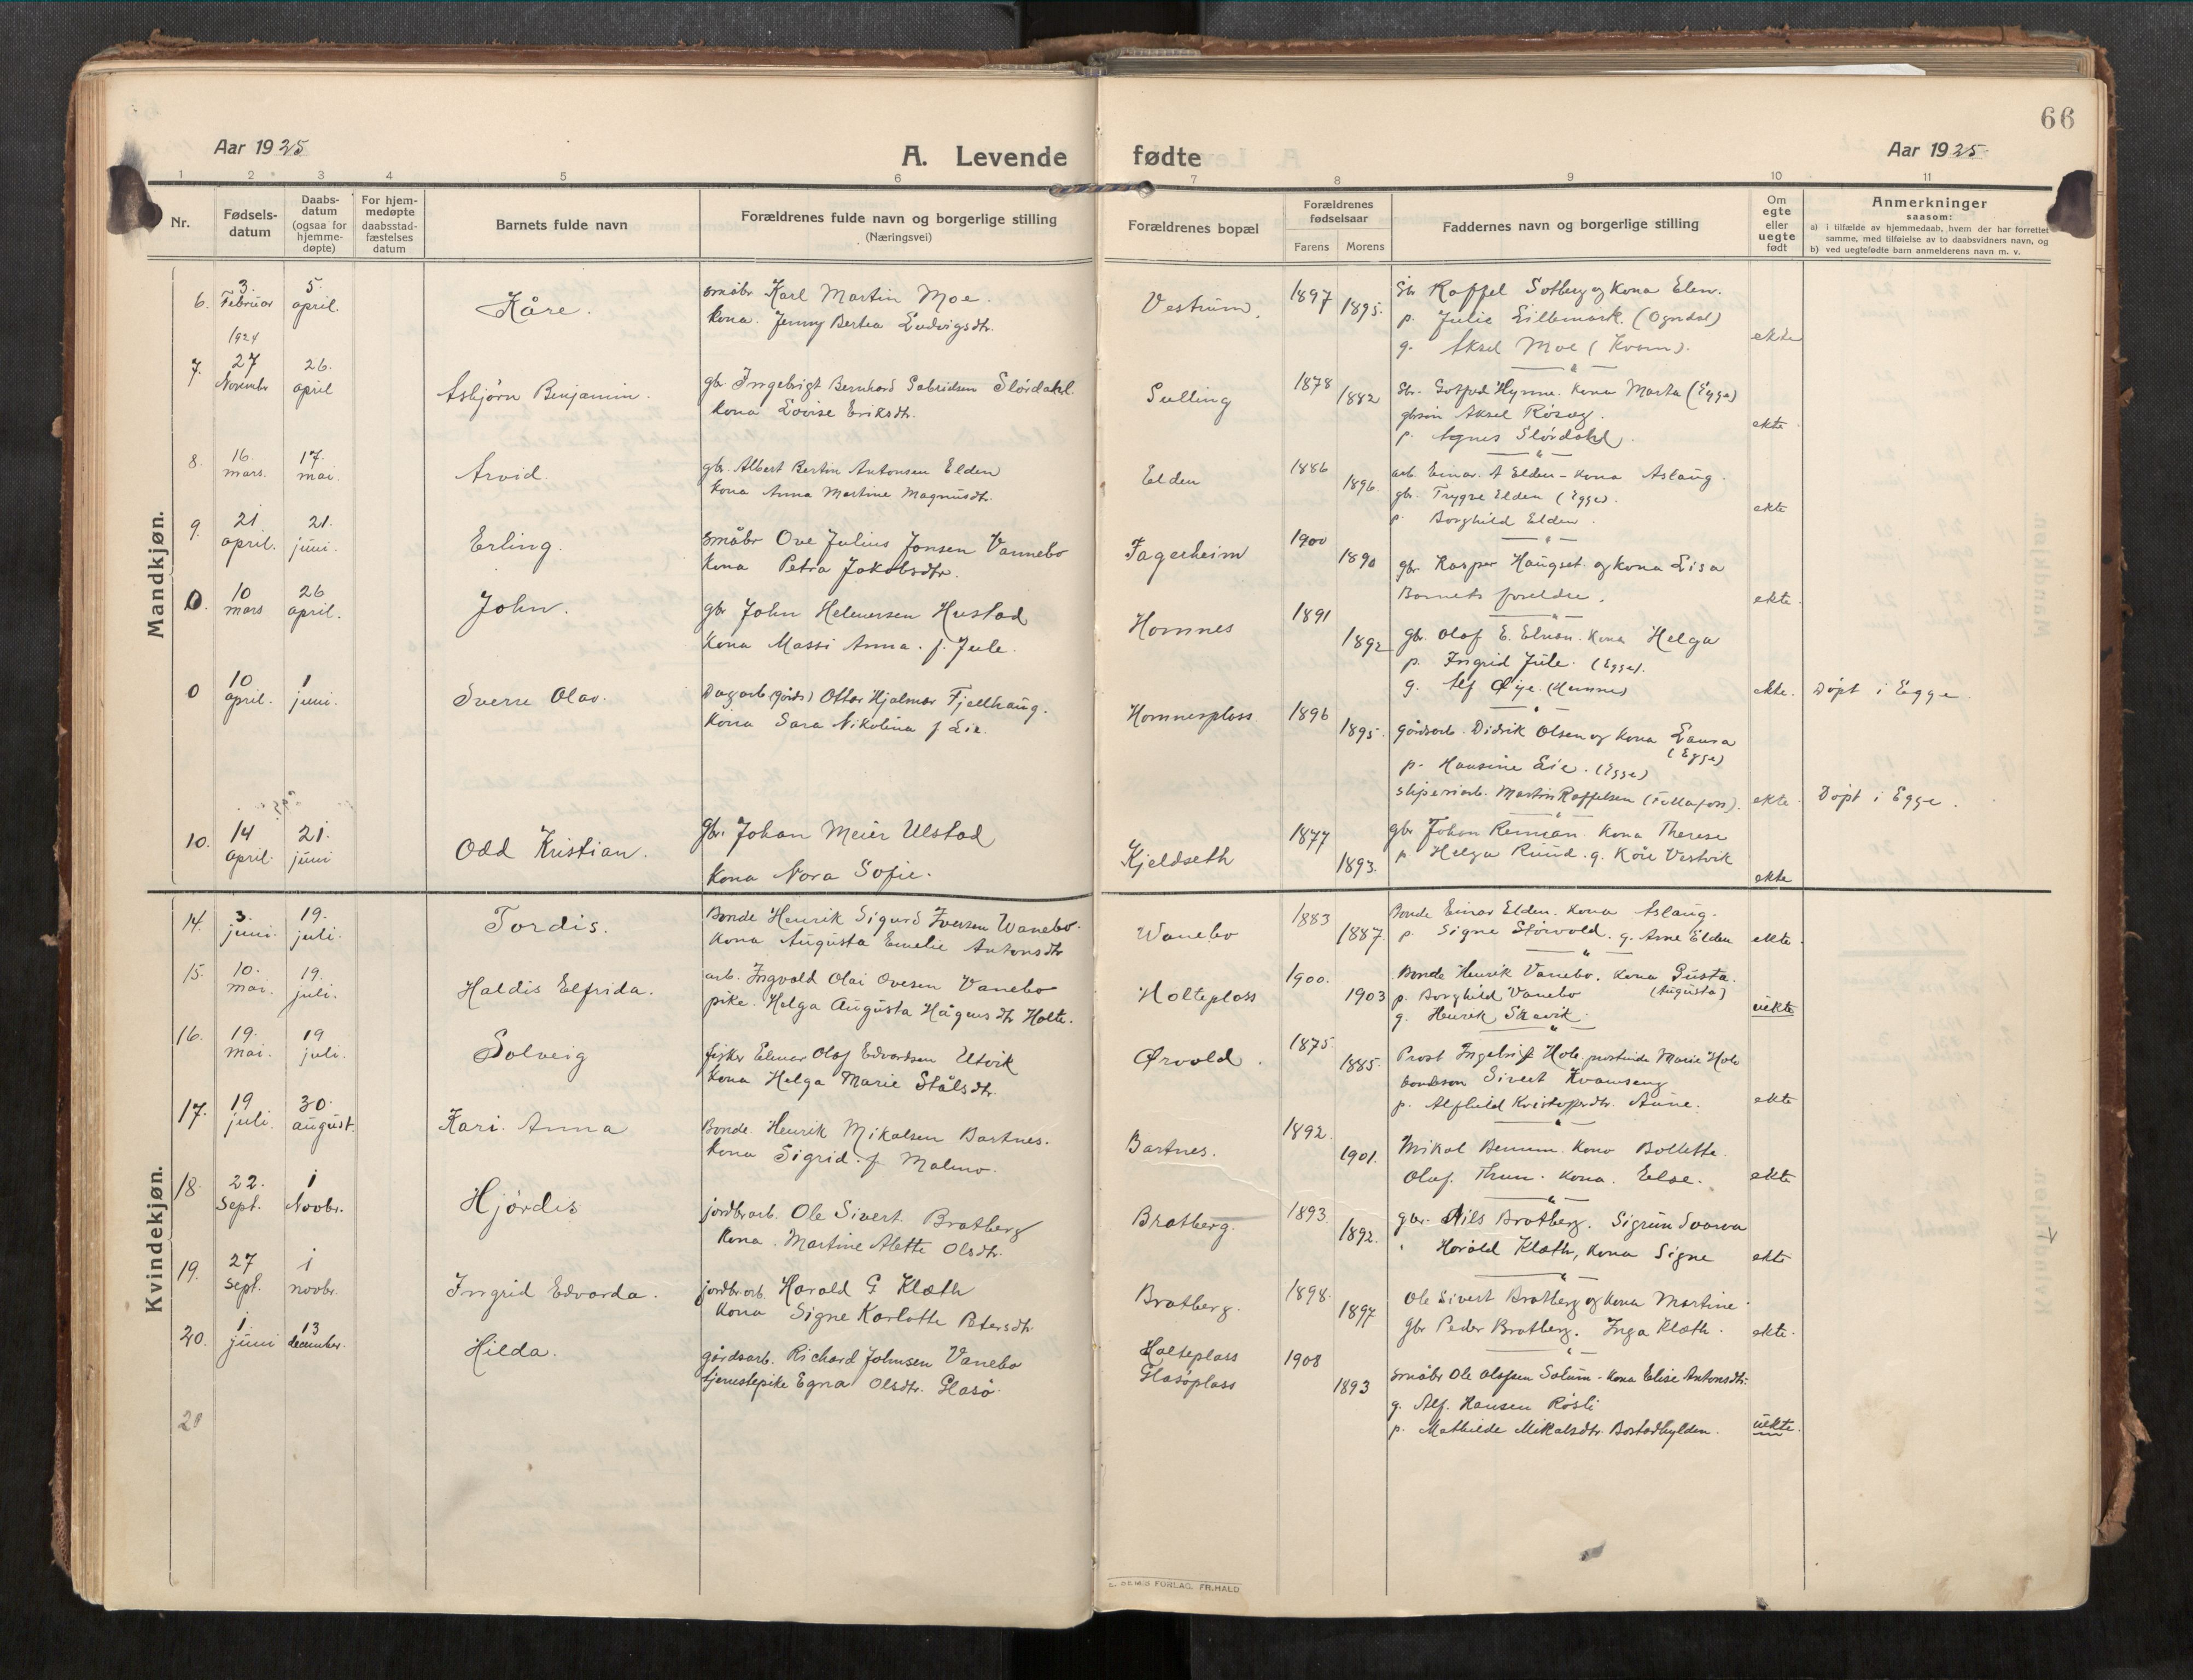 66
Aar 1925
A. Levende fødte
Aar 1925
1 2 3 4 5 6 7 8 9 10 11
Nr.
Fødsels-
datum
Daabs-
datum
(ogsaa for
hjemme-
døpte)
For hjem-
medøpte
daabsstad-
fæstelses
datum
Barnets fulde navn
Forældrenes fulde navn og borgerlige stilling
(Næringsvei)
Forældrenes bopæl
Forældrenes
fødselsaar
Farens Morens
Faddernes navn og borgerlige stilling
Om
egte
eller
uegte
født
Anmerkninger
saasom:
a) i tilfælde av hjemmedaab, hvem der har forrettet
samme, med tilføielse av to daabsvidners navn, og
b) ved uegtefødte barn anmelderens navn m. v.
Mandkjøn.
6. 3. Februar 5. april. Kåre. småbr Karl Martin Moe.
kona. Jenny Bertea Ludvigsdtr.
Vestrum. 1897 1895. Gbr Roffel Sotberg og kona Elen.
p. Julie Lillemark. (Ogndal)
g. Aksel Moe (Kvam). ekte
7. 1924 27 Novembr 26. april Asbjørn Benjamin. gbr Ingebrigt Bernhard Gabrielsen Slørdahl.
kona Lovise Eriksdtr.
Sulling 1878 1882 Gbr. Gotfred Hynne. kona Marta (Egge)
gbrsøn Aksel Røsæg.
p. Agnes Slørdahl. ekte
8. 16. mars. 17. mai. Arvid. gbr. Albert Bertin Antonsen Elden
kona Anna Martine Magnusdtr.
Elden 1886 1896. arb. Einar A Elden - kona Aslaug.
gbr. Trygve Elden (Egge).
p. Borghild Elden. ekte
9. 21 april. 21. juni. Erling. småbr Ove Julius Jonsen Vannebo
kona Petra Jakobsdtr.
Fagerheim 1900 1890 gbr Kasper Haugset og kona Lisa
Barnets foreldre. ekte.
0. 10 mars 26 april. John. gbr John Helmersen Hustad
kona Massi Anna. f. Jule.
Homnes 1891 1892 gbr. Olaf E. Elnan. kona Helga
p. Ingrid Jule. (Egge).
g. Alf Øye. (Humnes) ekte. Døpt i Egge
0 10 april. 1 juni. Sverre Olav. Dagarb (gårds) Ottar Hjalmar Fjellhaug.
kona Sara Nikolina f Lie.
Homnesplass 1896 1895. gårdsarb. Didrik Olsen og kona Laura
(Egge)
p. Hansine Lie. (Egge)
sliperiarb. Martin Roffelsen (Follafoss). ekte. Døpt i Egge.
10. 14 april. 21. juni Odd Kristian. Gbr. Johan Meier Ulstad
kona Nora Sofie.
Kjeldseth 1877 1893. gbr Johan Remian. kona Therese
p. Helga Ruud. g. Kåre Vestvik ekte
Kvindekjøn.
14. 3. juni. 19. juli. Tordis. Bonde Henrik Sigurd Iversen Wanebo.
kona Augusta Emelie Antonsdtr
Wanebo 1883 1887. Bonde Einar Elden. kona Aslaug.
p. Signe Størvold. g. Arne Elden ekte.
15. 10. mai. 19. juli. Haldis Elfrida. arb. Ingvald Olai Ovesen Vanebo
pike. Helga Augusta Hågensdtr Holte.
Holteplass 1900. 1903 Bonde Henrik Vanebo. kona Gusta.
(Augusta)
p. Borghild Vanebo
g. Henrik Skevik. uekte
16. 19. mai. 19 juli. Solveig fisker Elmer Olaf Edvardsen Utvik
kona Helga Marie Stålsdtr.
Ørvold. 1875. 1885. Prost Ingebrigt Hole prostinde Marie Hole
bondesøn Sivert Kvamseng
p. Alfhild Kristoffersdtr. Aune. ekte
17. 19 juli. 30. august. Kari Anna Bonde. Henrik Mikalsen Bartnes.
kona Sigrid. f Malmo.
Bartnes. 1892. 1901. Mikal Benum. kona Bollette.
Olaf. Thun. kona. Else. ekte
18. 22. Sept. 1 Novbr. Hjørdis jordbrarb. Ole Sivert Bratberg
kona. Martine Alette Olsdtr.
Bratberg. 1893. 1892. gbr. Nils Bratberg. Sigrun Svarva
Harald Klæth, kona Signe ekte
19. 27 Sept. 1 novbr. Ingrid Edvarda. jordbrarb. Harald G Klæth
kona Signe Karlotte Petersdtr.
Bratberg. 1898. 1897 Ole Sivert Bratberg og kona Martine.
Gbr Peder Bratberg. Inga Klæth. ekte.
20. 1. juni 13 december. Hilda. gårdsarb. Richard Johnsen Vanebo
tjenestepike Egna Olsdtr. Glasø.
Holteplass
Glasøplass 1908 1893 småbr Ole Olafsen Solum - kona Elise Antonsdtr.
g. Alf. Hansen Røsli
p. Mathilde Mikalsdtr. Bostadhylden. uekte.
21
FORLAG. FR.HALD